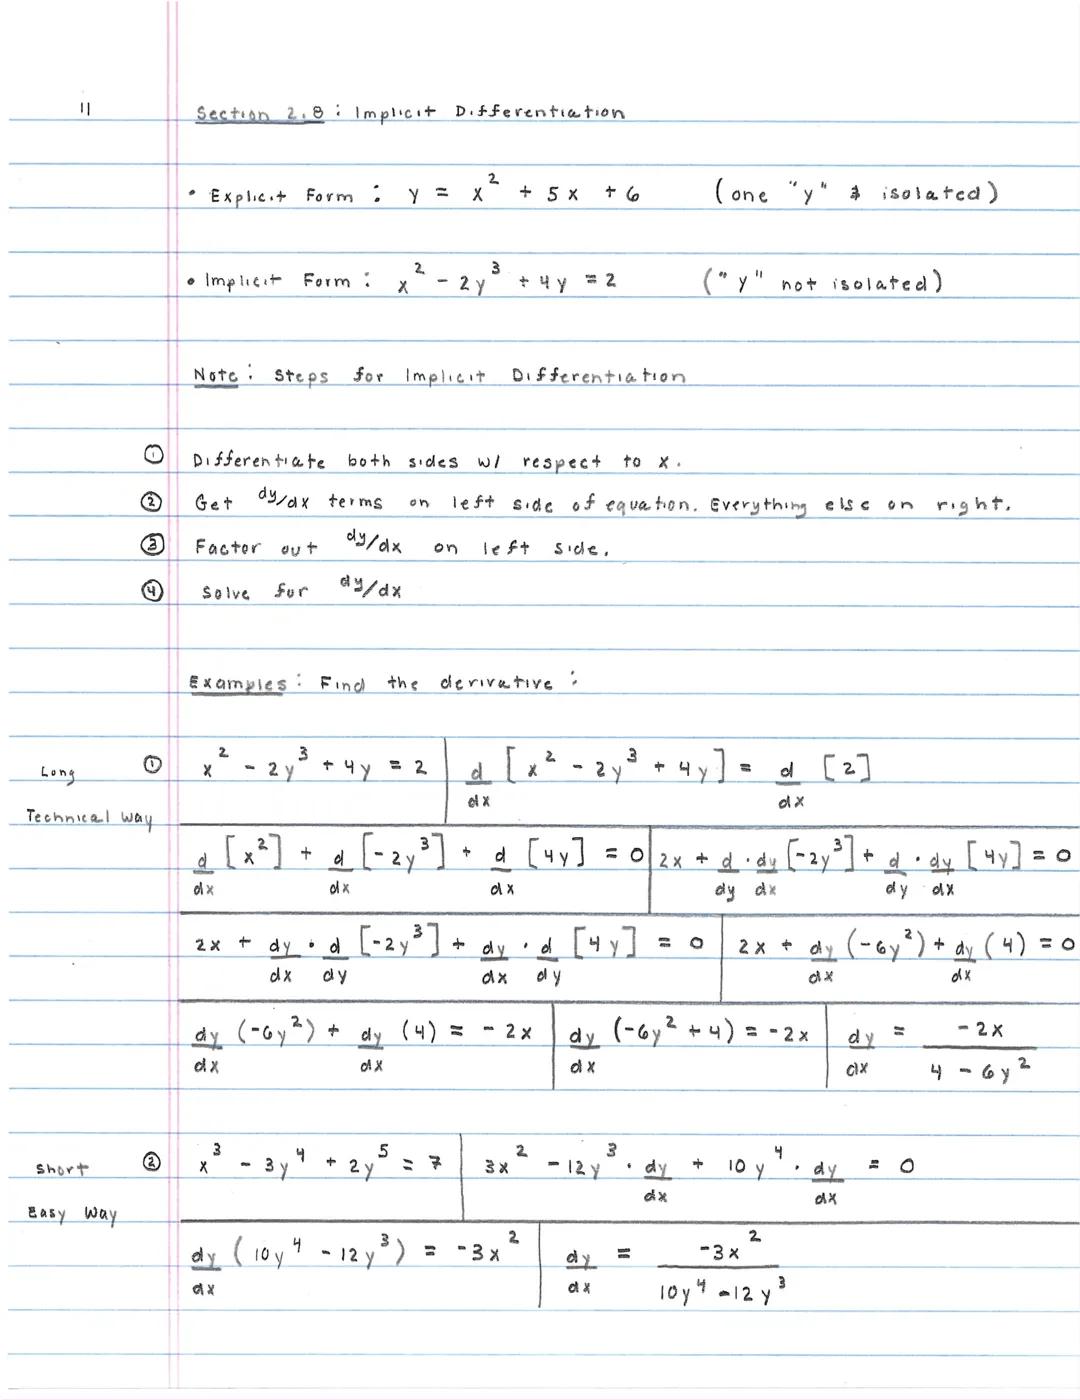 11
Section 2.8 : Implicit Differentiation
• Explicit Form : y = x² + 5x + 6 (one "y" & isolated)
• Implicit Form : x² - 2y³ + 4y = 2 ("y" not isolated)
Note : Steps for Implicit Differentiation
① Differentiate both sides w/ respect to x.
② Get dy/dx terms on left side of equation. Everything else on right.
③ Factor out dy/dx on left side.
④ Solve for dy/dx
Examples : Find the derivative :
Long Technical Way ① x² - 2y³ + 4y = 2 | d/dx [x² - 2y³ + 4y] = d/dx [2]
d/dx [x²] + d/dx [-2y³] + d/dx [4y] = 0 | 2x + d/dy · dy/dx [-2y³] + d/dy · dy/dx [4y] = 0
2x + dy/dx · d/dy [-2y³] + dy/dx · d/dy [4y] = 0 | 2x + dy/dx (-6y²) + dy/dx (4) = 0
dy/dx (-6y²) + dy/dx (4) = -2x | dy/dx (-6y² + 4) = -2x | dy/dx = -2x / 4 - 6y²
Short Easy Way ② x³ - 3y⁴ + 2y⁵ = 7 | 3x² - 12y³ · dy/dx + 10y⁴ · dy/dx = 0
dy/dx (10y⁴ - 12y³) = -3x² | dy/dx = -3x² / 10y⁴ - 12y³